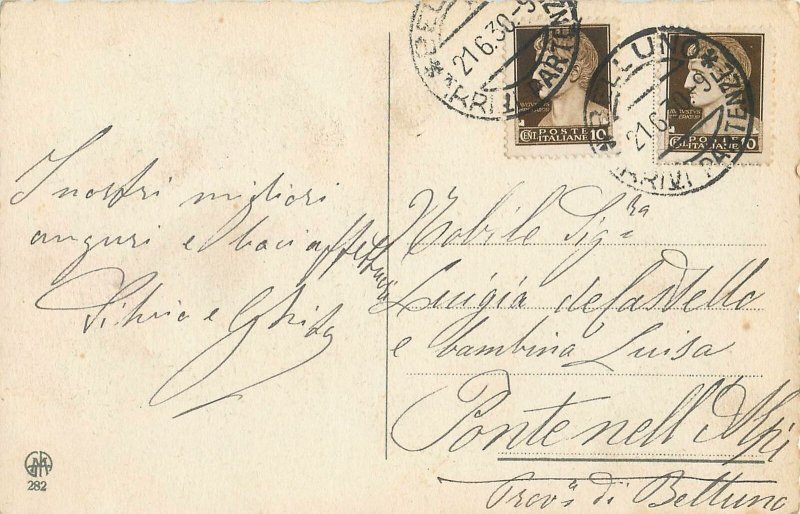 I nostri migliori
auguri e baci affettuosi
Silvio e Ghita
282
BELLUNO
21.6.30.-9
ARRIVI PARTENZE
AVGVSTVS
CENT. POSTE 10
ITALIANE
BELLUNO
21.6.30-9
ARRIVI PARTENZE
AVGVSTVS
CENT. POSTE 10
ITALIANE
Nobile Sig.ra
Luigia de Castello
e bambina Luisa
Ponte nell'Alpi
Prov.a di Belluno